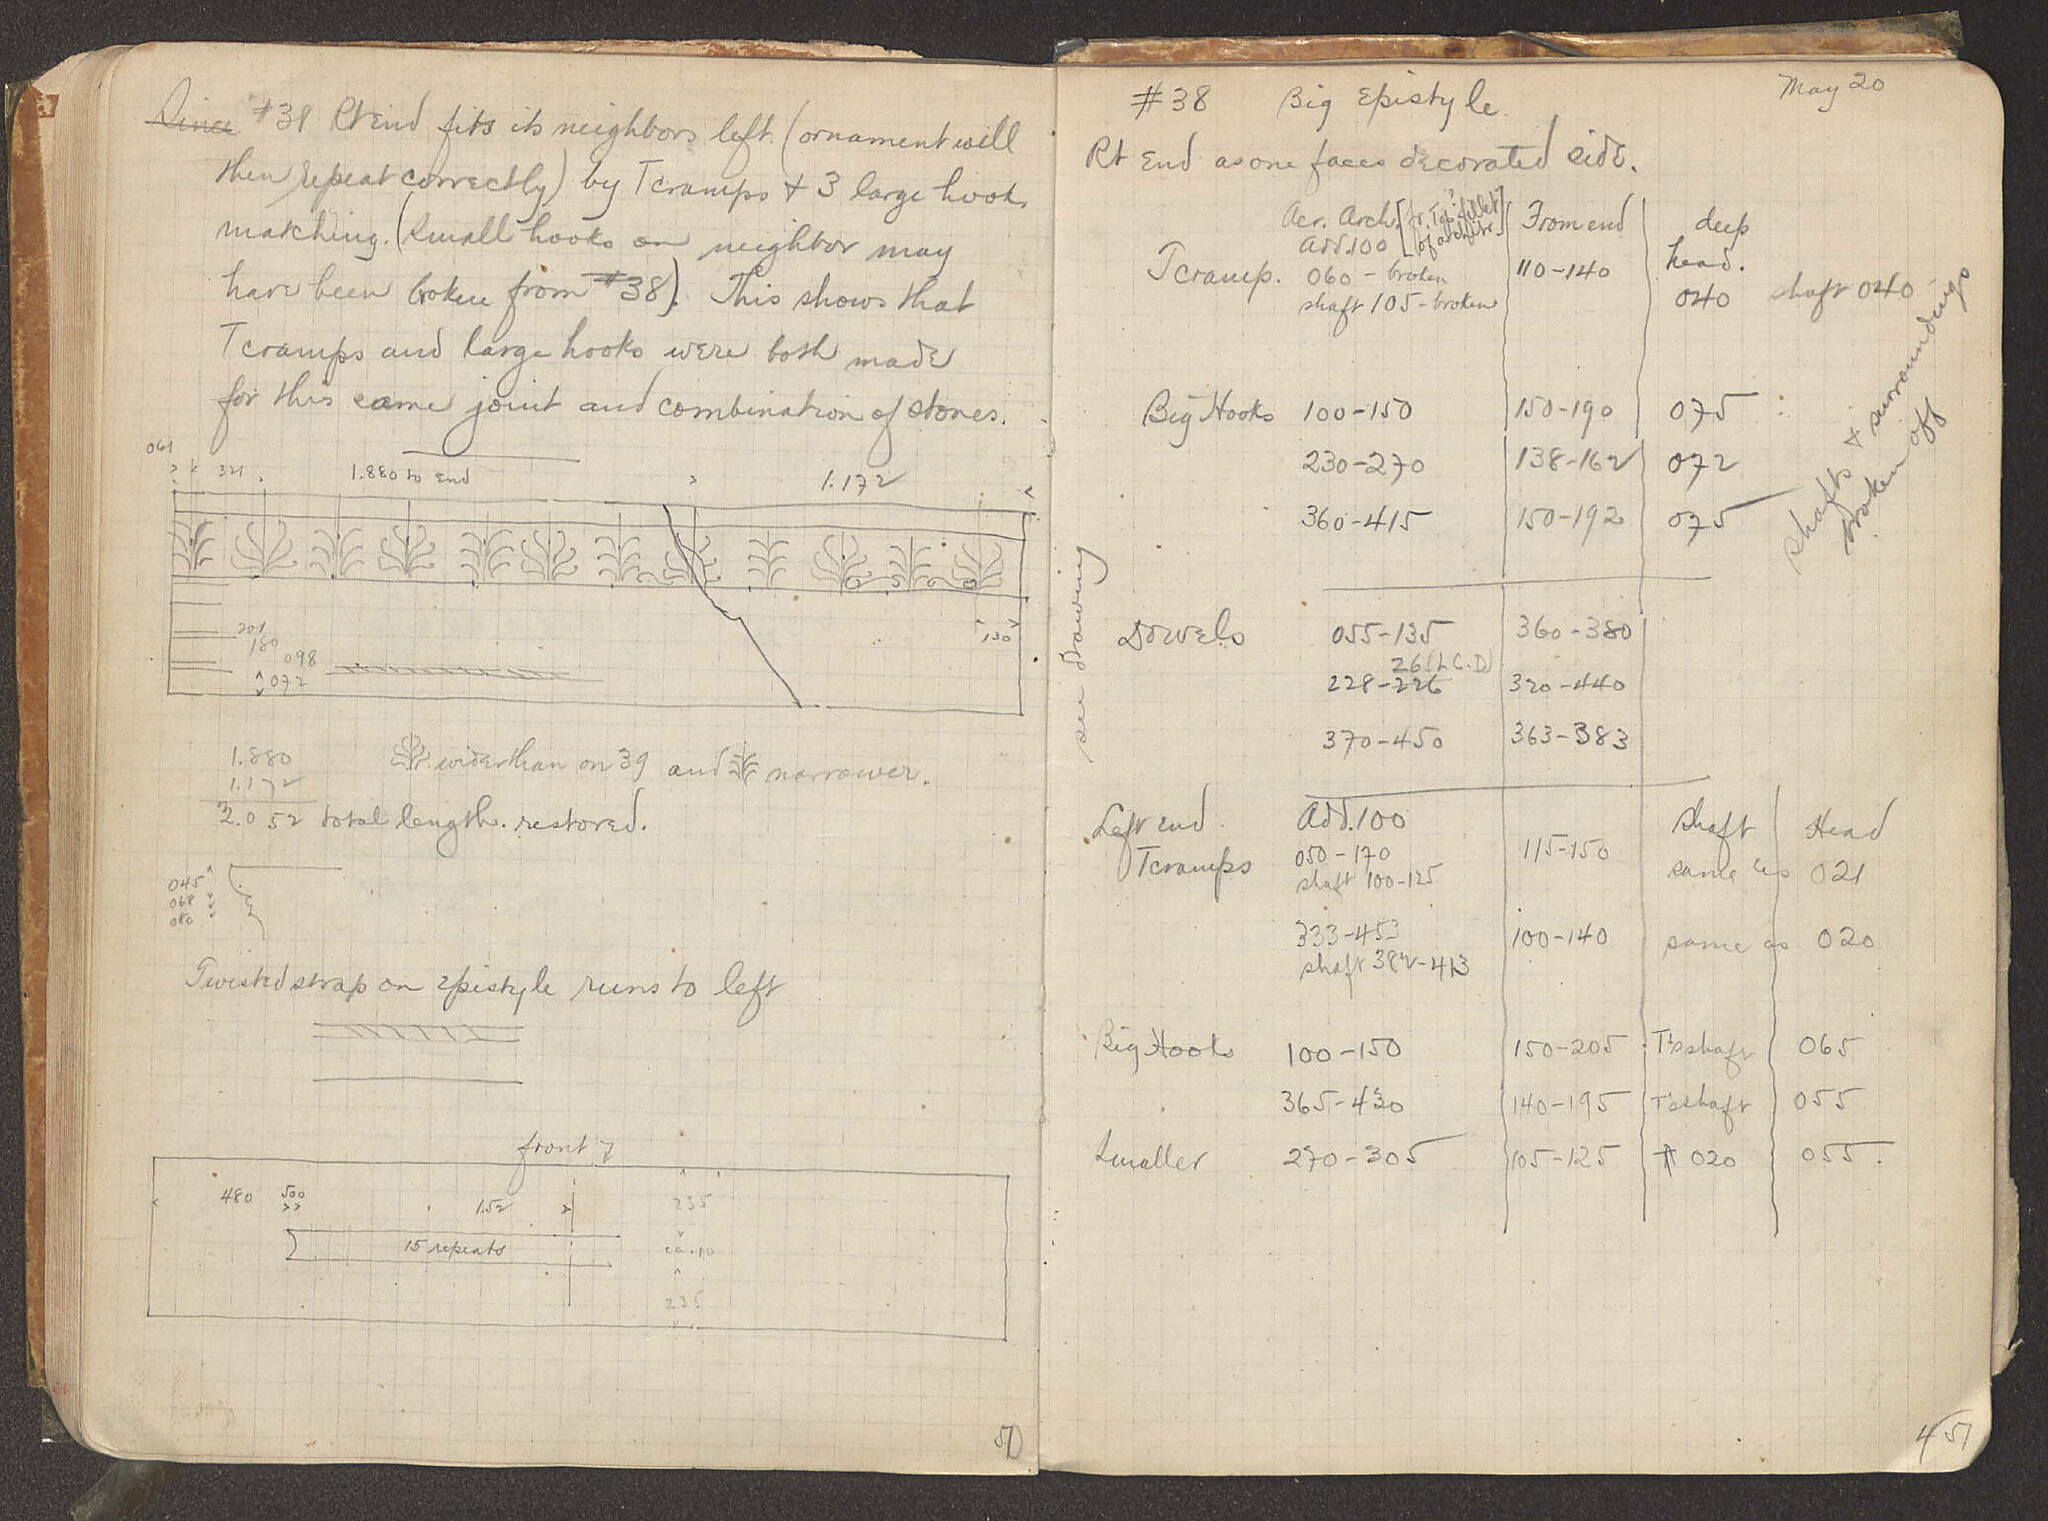 Since #38 Rt End fits its neighbors left (ornament will
then repeat correctly) by Tcramps + 3 large hook
matching. (Small hooks on neighbor may
have been broken from #38). This shows that
Tcramps and large hooks were both made
for this same joint and combination of stones.
061
321 1.880 to End 1.172
201
180
098
072
130
1.880
1.172
3.052 total length. restored.
wider than on 39 and narrower.
045
068
080
Twisted strap on epistyle runs to left
front
480 500 1.52 235
15 repeats ca. 10
235
#38 Big Epistyle. May 20
Rt End as one faces decorated side.
Acr. Arch. [fr. Top? fillet of architr.] From end deep
Add.100 head.
Tcramp. 060 - broken 110-140 040 shaft 040
shaft 105 - broken
Big Hooks 100-150 150-190 075
230-270 138-162 072
360-415 150-192 075
shafts + surroundings
broken off
see drawing
Dowels 055-135 360-380
26 (L.C.D)
228-226 320-440
370-450 363-383
Left end Add.100 Shaft Head
Tcramps 050-170 115-150 same as 021
shaft 100-125
333-453 100-140 same as 020
shaft 382-413
Big Hooks 100-150 150-205 T's shaft 065
365-430 140-195 T's shaft 055
Smaller 270-305 105-125 020 055.